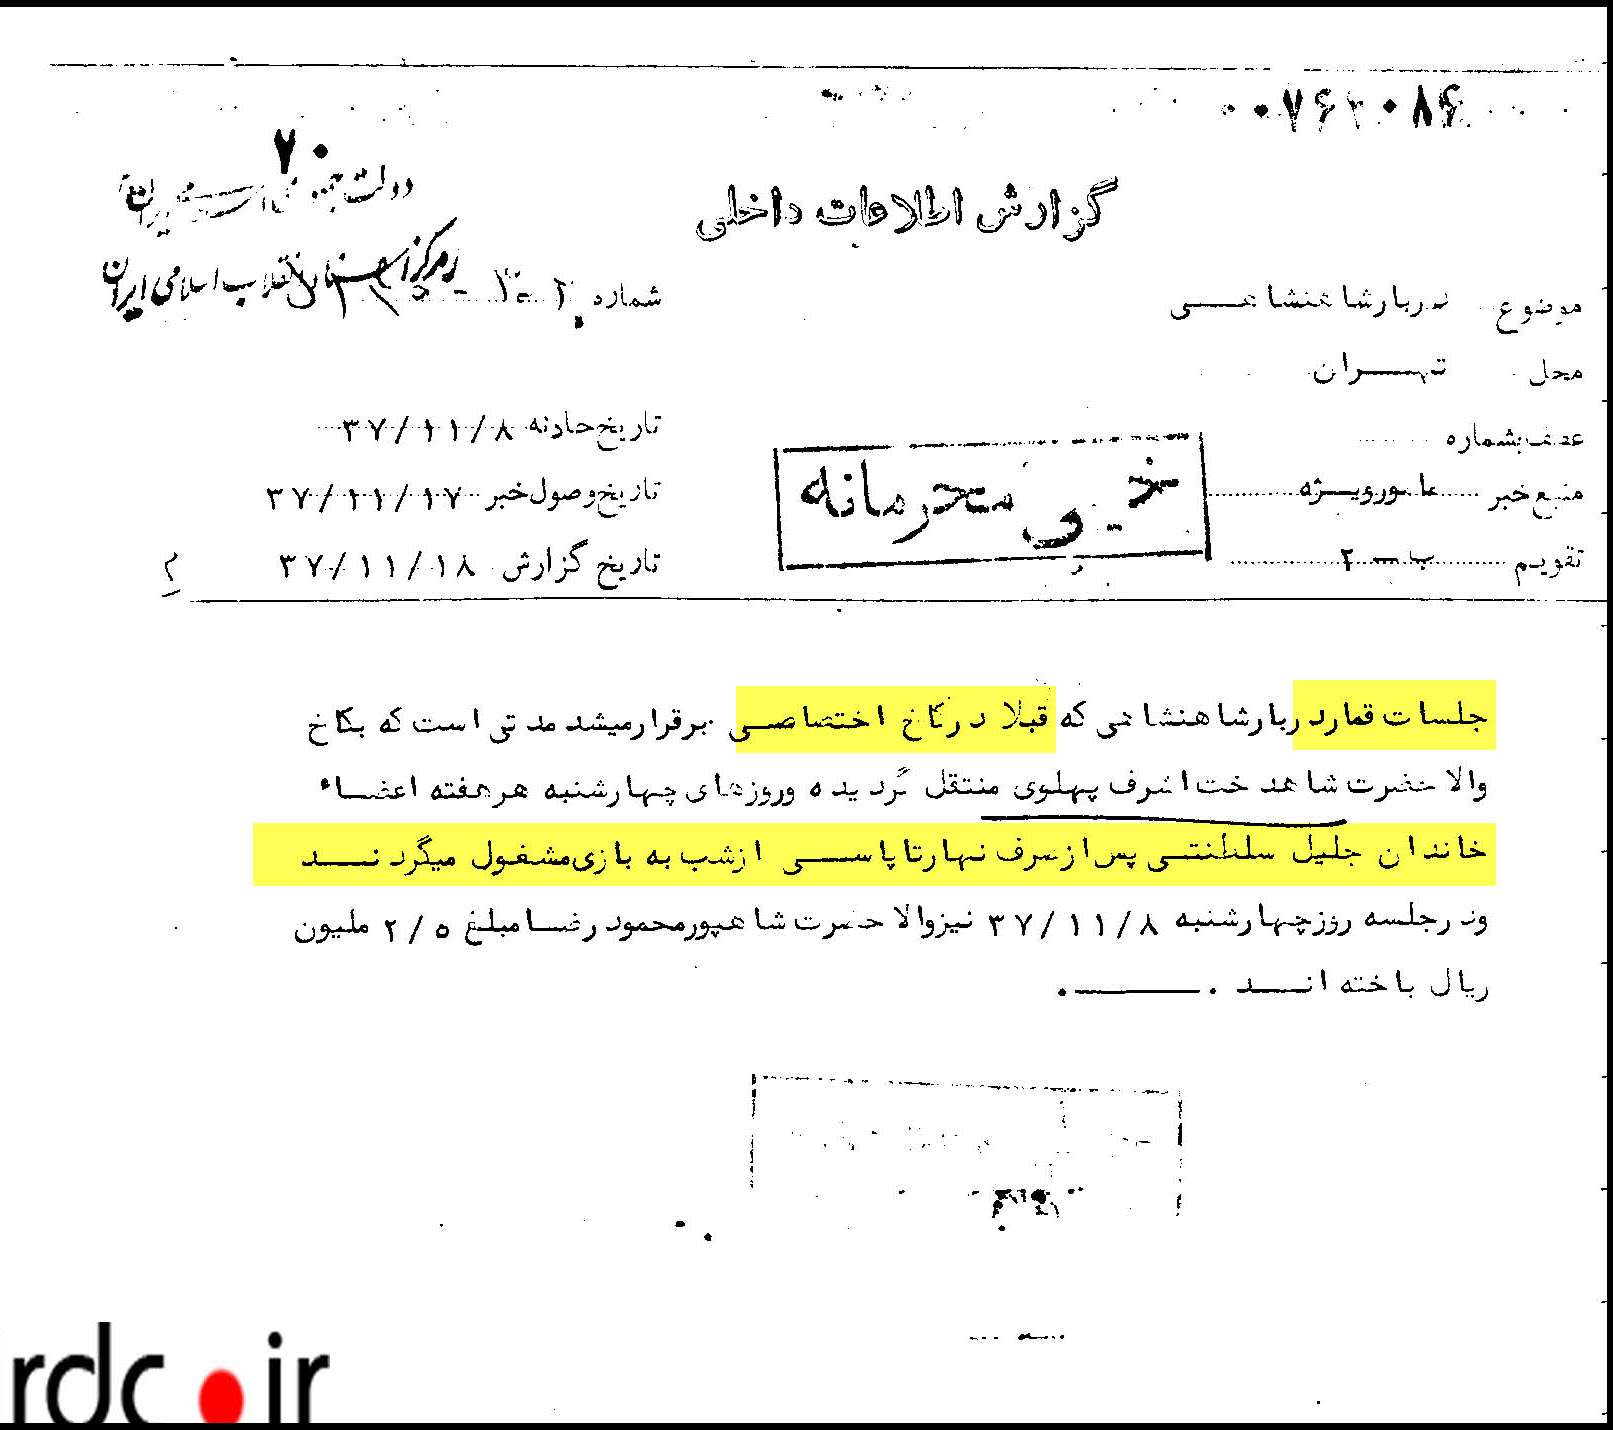 ۰۰۷۶۲۰۸۶
۷۰
دولت جمهوری اسلامی ایران
مرکز اسناد انقلاب اسلامی ایران
گزارش اطلاعات داخلی
موضوع دربارشاهنشاهی
شماره
محل تهران
تاریخ حادثه ۳۷/۱۱/۸
عطف بشماره
خیلی محرمانه
منبع خبر مامورویژه
تاریخ وصول خبر ۳۷/۱۱/۱۷
تقویم ب - ۲
تاریخ گزارش ۳۷/۱۱/۱۸
جلسات قماردربارشاهنشاهی که قبلا درکاخ اختصاصی برقرارمیشد مدتی است که بکاخ
والاحضرت شاهدخت اشرف پهلوی منتقل گردیده وروزهای چهارشنبه هرهفته اعضاء
خاندان جلیل سلطنتی پس ازصرف نهارتاپاسی ازشب به بازی مشغول میگردند
ودرجلسه روزچهارشنبه ۳۷/۱۱/۸ نیزوالاحضرت شاهپورمحمودرضامبلغ ۲/۵ ملیون
ریال باخته اند .
irdc.ir